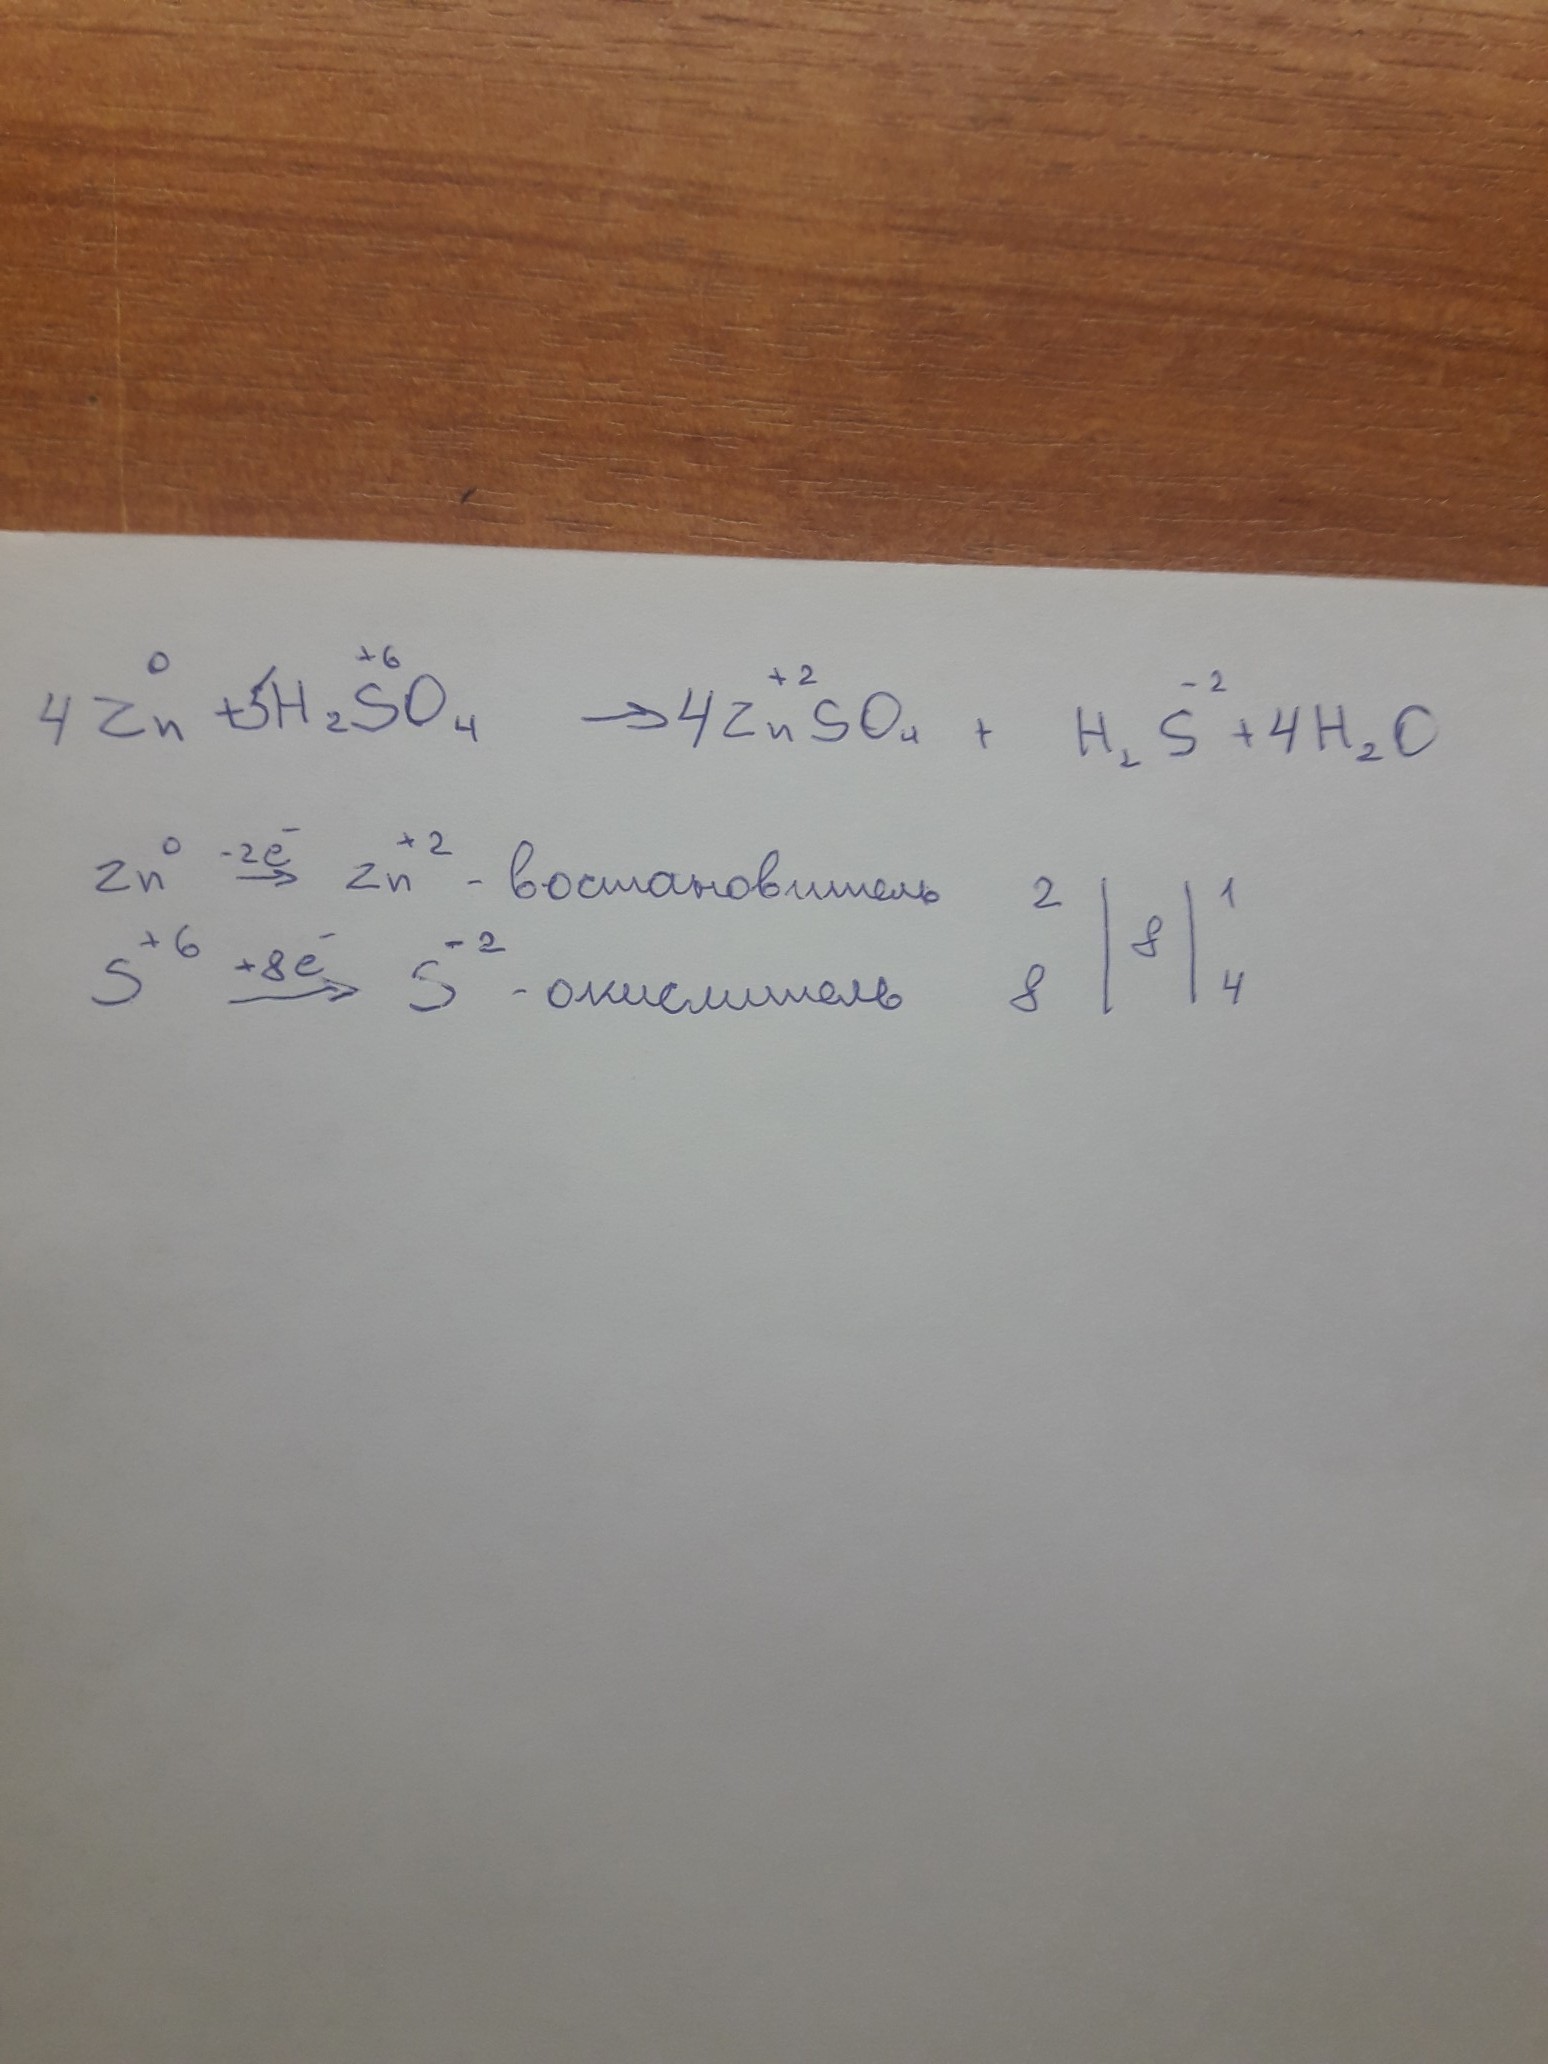 4Zn⁰ + 5H₂S⁺⁶O₄ → 4Zn⁺²SO₄ + H₂S⁻² + 4H₂O
Zn⁰ -2e⁻→ Zn⁺² - востановитель 2 | 8 | 1
S⁺⁶ +8e⁻→ S⁻² - окислитель 8 | | 4